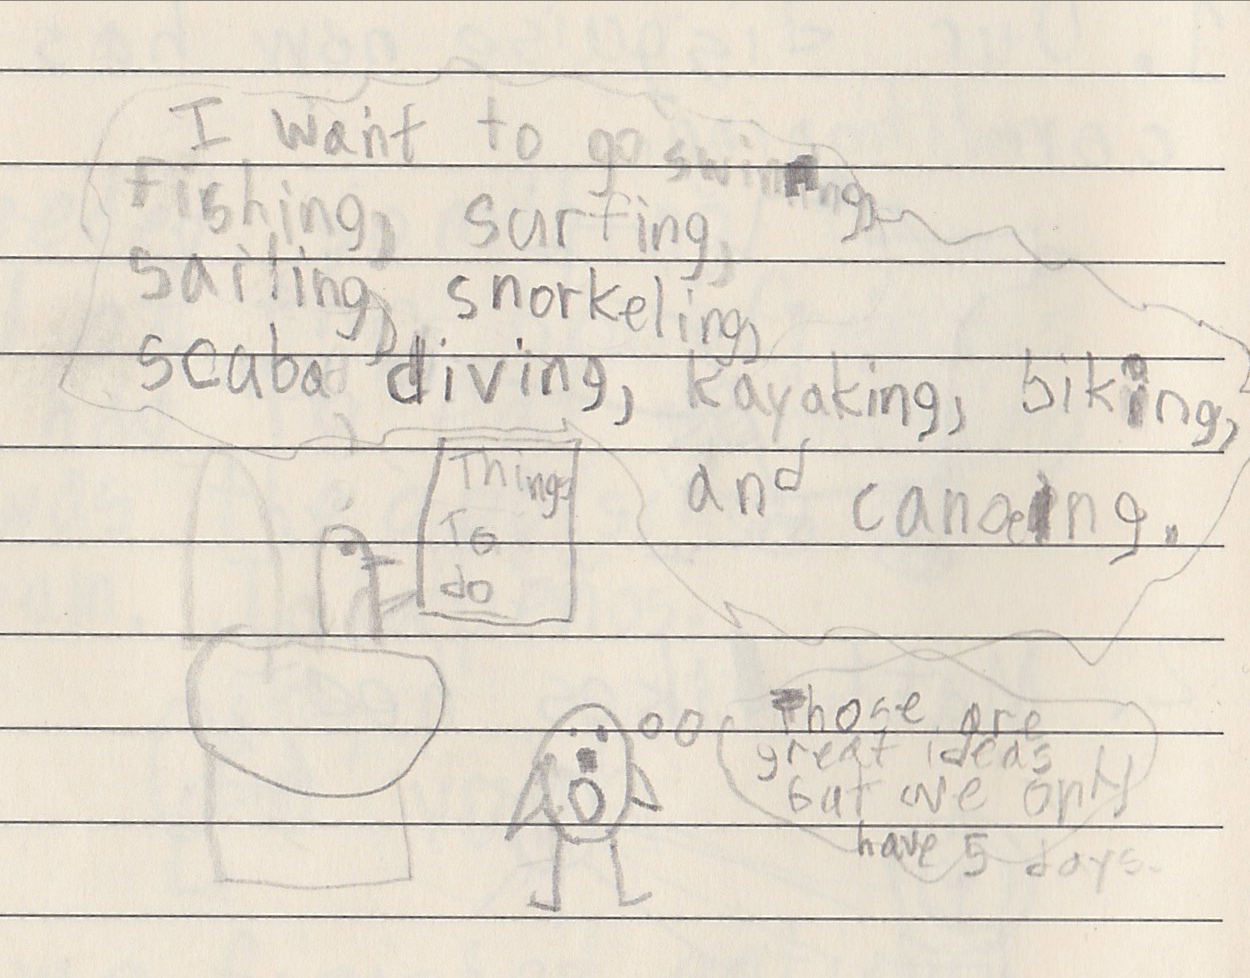 I want to go swimming,
fishing, surfing,
sailing, snorkeling,
scaba diving, kayaking, biking,
and canoeing.
Things
To
do
Those are
great ideas
but we only
have 5 days.